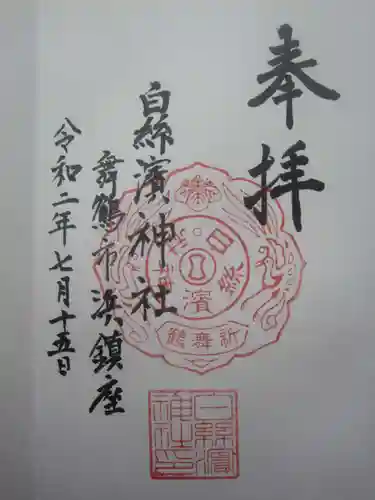 奉拝
白絲濱神社
舞鶴市浜鎮座
令和二年七月十五日
白絲濱
新舞鶴
白絲濱
神社印